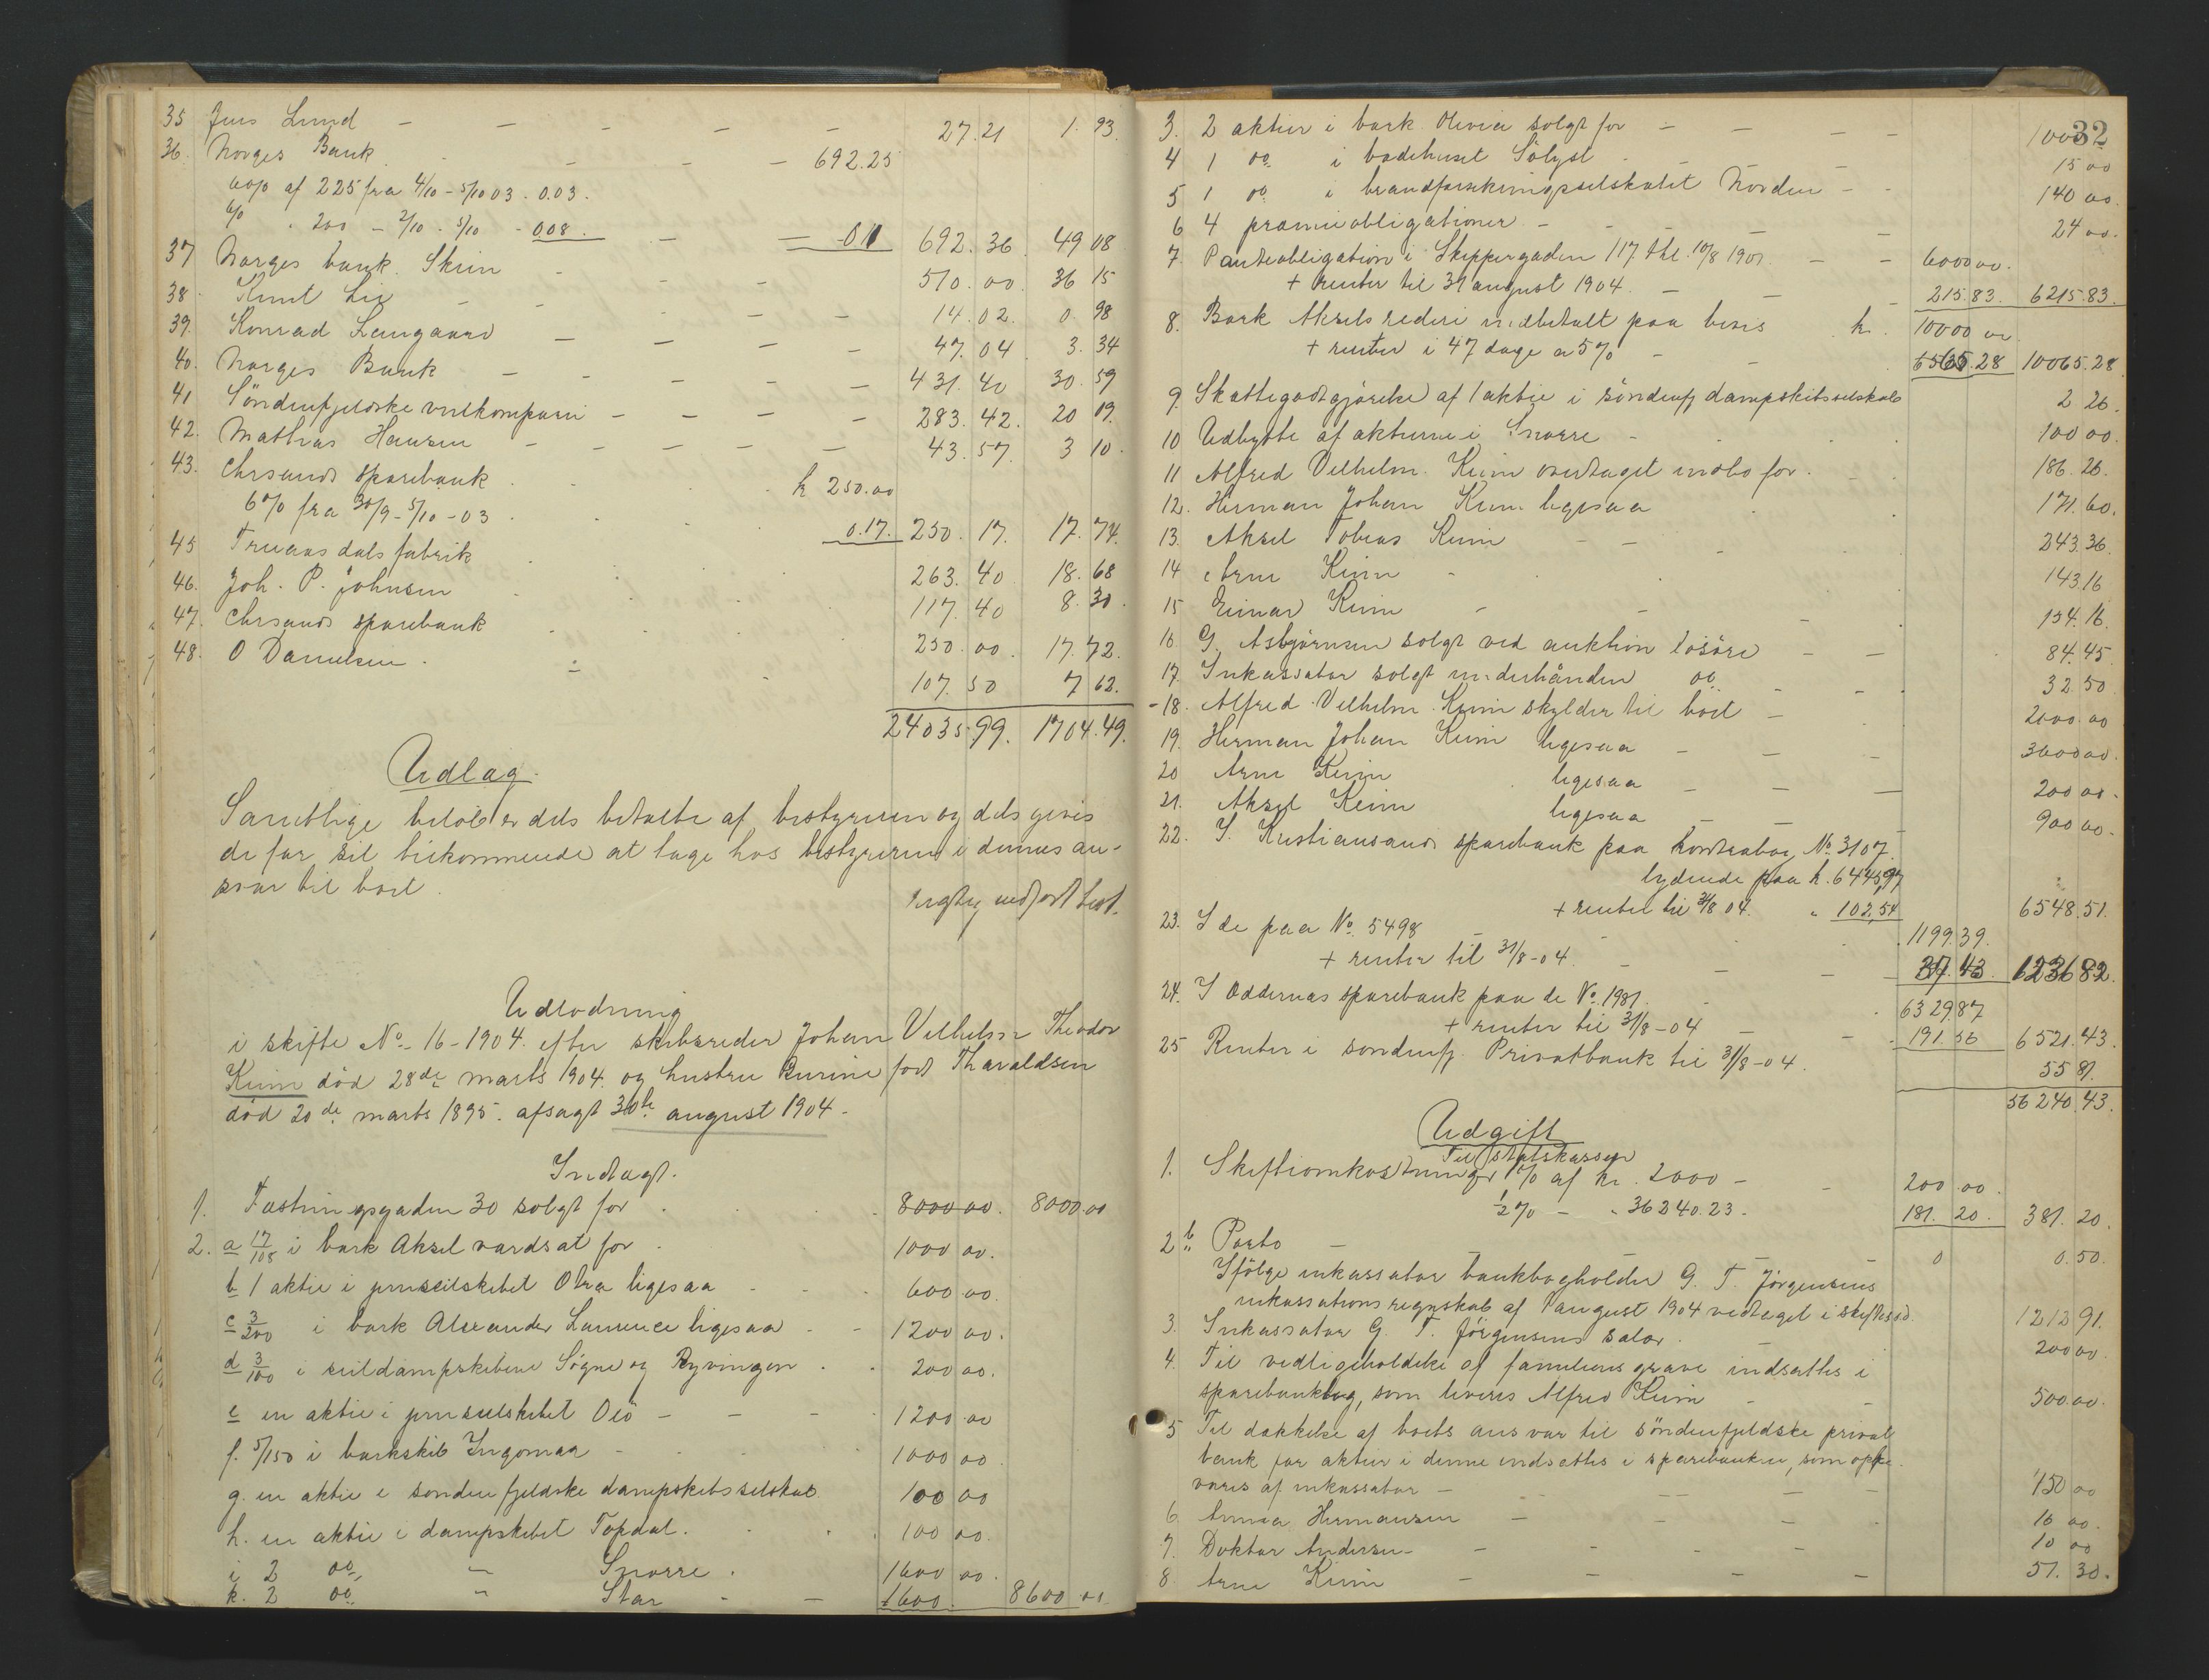 35 Jens Lund - - - - - 27.21 1.93.
36. Norges Bank - - - 692.25
6 0/0 af 225 fra 4/10 - 5/10 03 . 0.03.
6/0 . 200 - 2/10 - 5/10 - 0.08. - - 0.11 692.36. 49 08
37 Norges bank. Skien - - - 510.00. 36 15
38. Knut Lie - - - - 14.02. 0 98
39. Konrad Langaard - - - - 47.04. 3.34
40. Norges Bank - - - - - 431.40 30.59
41 Söndenfjeldske - - - - 283.42. 20 09.
42. Mathias Hansen - - - - - 43.57. 3 10.
43. Chrsands sparebank . . . k 250.00
6 0/0 fra 30/9 - 5/10 - 03 . . . 0.17. 250.17. 17.74.
45 Truansdals fabrik . . . 263.40 18.68
46. Joh. P. Johnsen . . . 117.40 8.30.
47. Chrsands sparebank . . . 250.00. 17.72.
48. O Danielsen. - . 107.50 7 62.
24035.99. 1704.49.
Udlæg.
Samtlige beløb er dels betalte af bestyreren og dels gives
de for sit vedkommende at tage hos bestyreren i dennes an-
svar til boet.
rigtig udført
Udlodning
i skifte No. 16-1904. efter skibsreder Johan Vilhelm Theodor
Keim død 28de marts 1904. og hustru Burine født Tharaldsen
død 20de marts 1895. afsagt 30te august 1904 -
Indtægt.
1. Fæstningsgaden 30 solgt for . . . 8000 00. 8000.00
2. a 17/108 i bark Aksel værdsat for . 1000 00.
b 1 aktie i jernseilskibet Otra ligesaa . . 600 00.
c 3/200 i bark Alexander Lawrence ligesaa - - 1200 00.
d 3/100 i seildampskibene Søgne og Ryvingen . . 200 00.
e en aktie i jernseilskibet Oló - - - . 1200 00
f. 5/150 i barkskib Ingomar - . . . 1000 00
g. en aktie i söndenfjeldske dampskibsselskab. 100 00
h. en aktie i dampskibet Topdal. . . . 100 00.
i 2 do " Snorre . 1600 00.
k. 2 do " Star - - 1600. 8600 00
32
3. 2 aktier i bark Olivia solgt for - - - - 1000
4 1 do i badehuset Sölyst . - - - 15 00
5 1 do i brandforsikringsselskabet Norden - - 140 00.
6 4 præmieobligationer - - - - 24 00.
7. Panteobligation i Skippergaden 117 thl. 10/8 1901. - - 6000 00.
+ renter til 31 august 1904. - - - 215.83. 6215.83.
8. Bark Aksels rederi indbetalt paa bevis k. 10000 00
+ renter i 47 dage a 5% - - 65.28 10065.28
9. Skattegodtgjørelse af 1 aktie i söndenfj dampskibsselskab 2 26.
10 Udbytte af aktierne i Snorre - . . . 100 00.
11 Alfred Vilhelm. Keim overtaget indbo for. . 186.26.
12. Herman Johan Keim ligesaa . 171.60.
13. Aksel Tobias Keim - - - 243.36.
14 Arne Keim - . . 143.16
15 Einar Keim - - - 134.16.
16. G. Asbjørnsen solgt ved auktion løsøre - - . 84.45
17. Inkassator solgt underhånden do - - . 32.50
-18. Alfred Vilhelm. Keim skylder til boet - 2000.00
19. Herman Johan Keim ligesaa - - - 3600 00.
20 Arne Keim ligesaa - - - 200 00.
21. Aksel Keim ligesaa - - - 900 00.
22. I Kristiansands sparebank paa kontrabog No. 3107.
lydende paa k. 6445,97
+ renter til 31/8 04. " 102,54 6548.51.
23. I do paa No. 5498 - - . . . 1199.39.
+ renter til 31/8-04. - - - 37.43. 1236 82.
24. I Oddernæs sparebank paa do No. 1981. . . 6329 87
+ renter til 31/8-04 - - - 191.56 6521.43.
25 Renter i söndenfj. Privatbank til 31/8-04. 55 81.
56 240.43.
Udgift
Til statskassen
1. Skifteomkostninger 1% af kr. 2000 - - 200.00.
1/2 % - . 36240.23. 181.20. 381.20.
2 b Porto - - - - - 0 0.50.
Ifölge inkassator bankbogholder G. T. Jörgensens
inkassationsregnskab af 1 august 1904 vedtaget i skiftesd. 1212 91.
3. Inkassator G. T. Jörgensens salær. - - 200 00.
4. Til vedligeholdelse af familiens grave indsættes i
sparebankbog, som leveres Alfred Keim - - 500.00.
5 Til dækkelse af boets ansvar til söndenfjeldske privat
bank for aktier i denne indsættes i sparebanken, som opbe-
vares af inkassator - - - - - 150 00
6. Anna Hermansen - - - - . 16 00.
7. Doktor Andersen - - - - - 10 00
8 Arne Keim - - - - - 51.30.